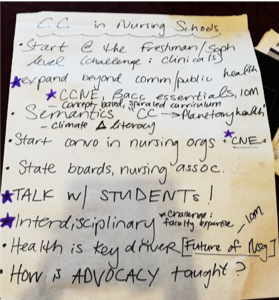 CC in Nursing Schools
• Start @ the Freshman/Soph
level (challenge: clinicals)
★ expand beyond comm/public health
★ CCNE, Bacc essentials, IOM
- concept based, spiraled curriculum
• Semantics CC → Planetary health
- climate Δ literacy
• Start convo in nursing orgs ★ CNE
• State boards, nursing assoc.
★ TALK W/ STUDENTS!
★ Interdisciplinary * challenge: faculty expertise - IOM
• Health is key driver [Future of Nsg]
• How is ADVOCACY taught?